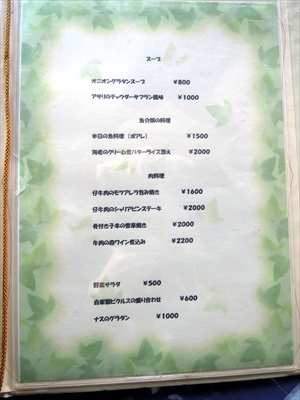 スープ
オニオングラタンスープ ¥800
アサリのチャウダーサフラン風味 ¥1000
魚介類の料理
本日の魚料理（ポアレ） ¥1500
海老のクリーム煮バターライス添え ¥2000
肉料理
仔牛肉のモツアレラ包み焼き ¥1600
仔牛肉のシャリアピンステーキ ¥2000
骨付き子羊の香草焼き ¥2000
牛肉の赤ワイン煮込み ¥2200
野菜サラダ ¥500
自家製ピクルスの盛り合わせ ¥600
ナスのグラタン ¥1000